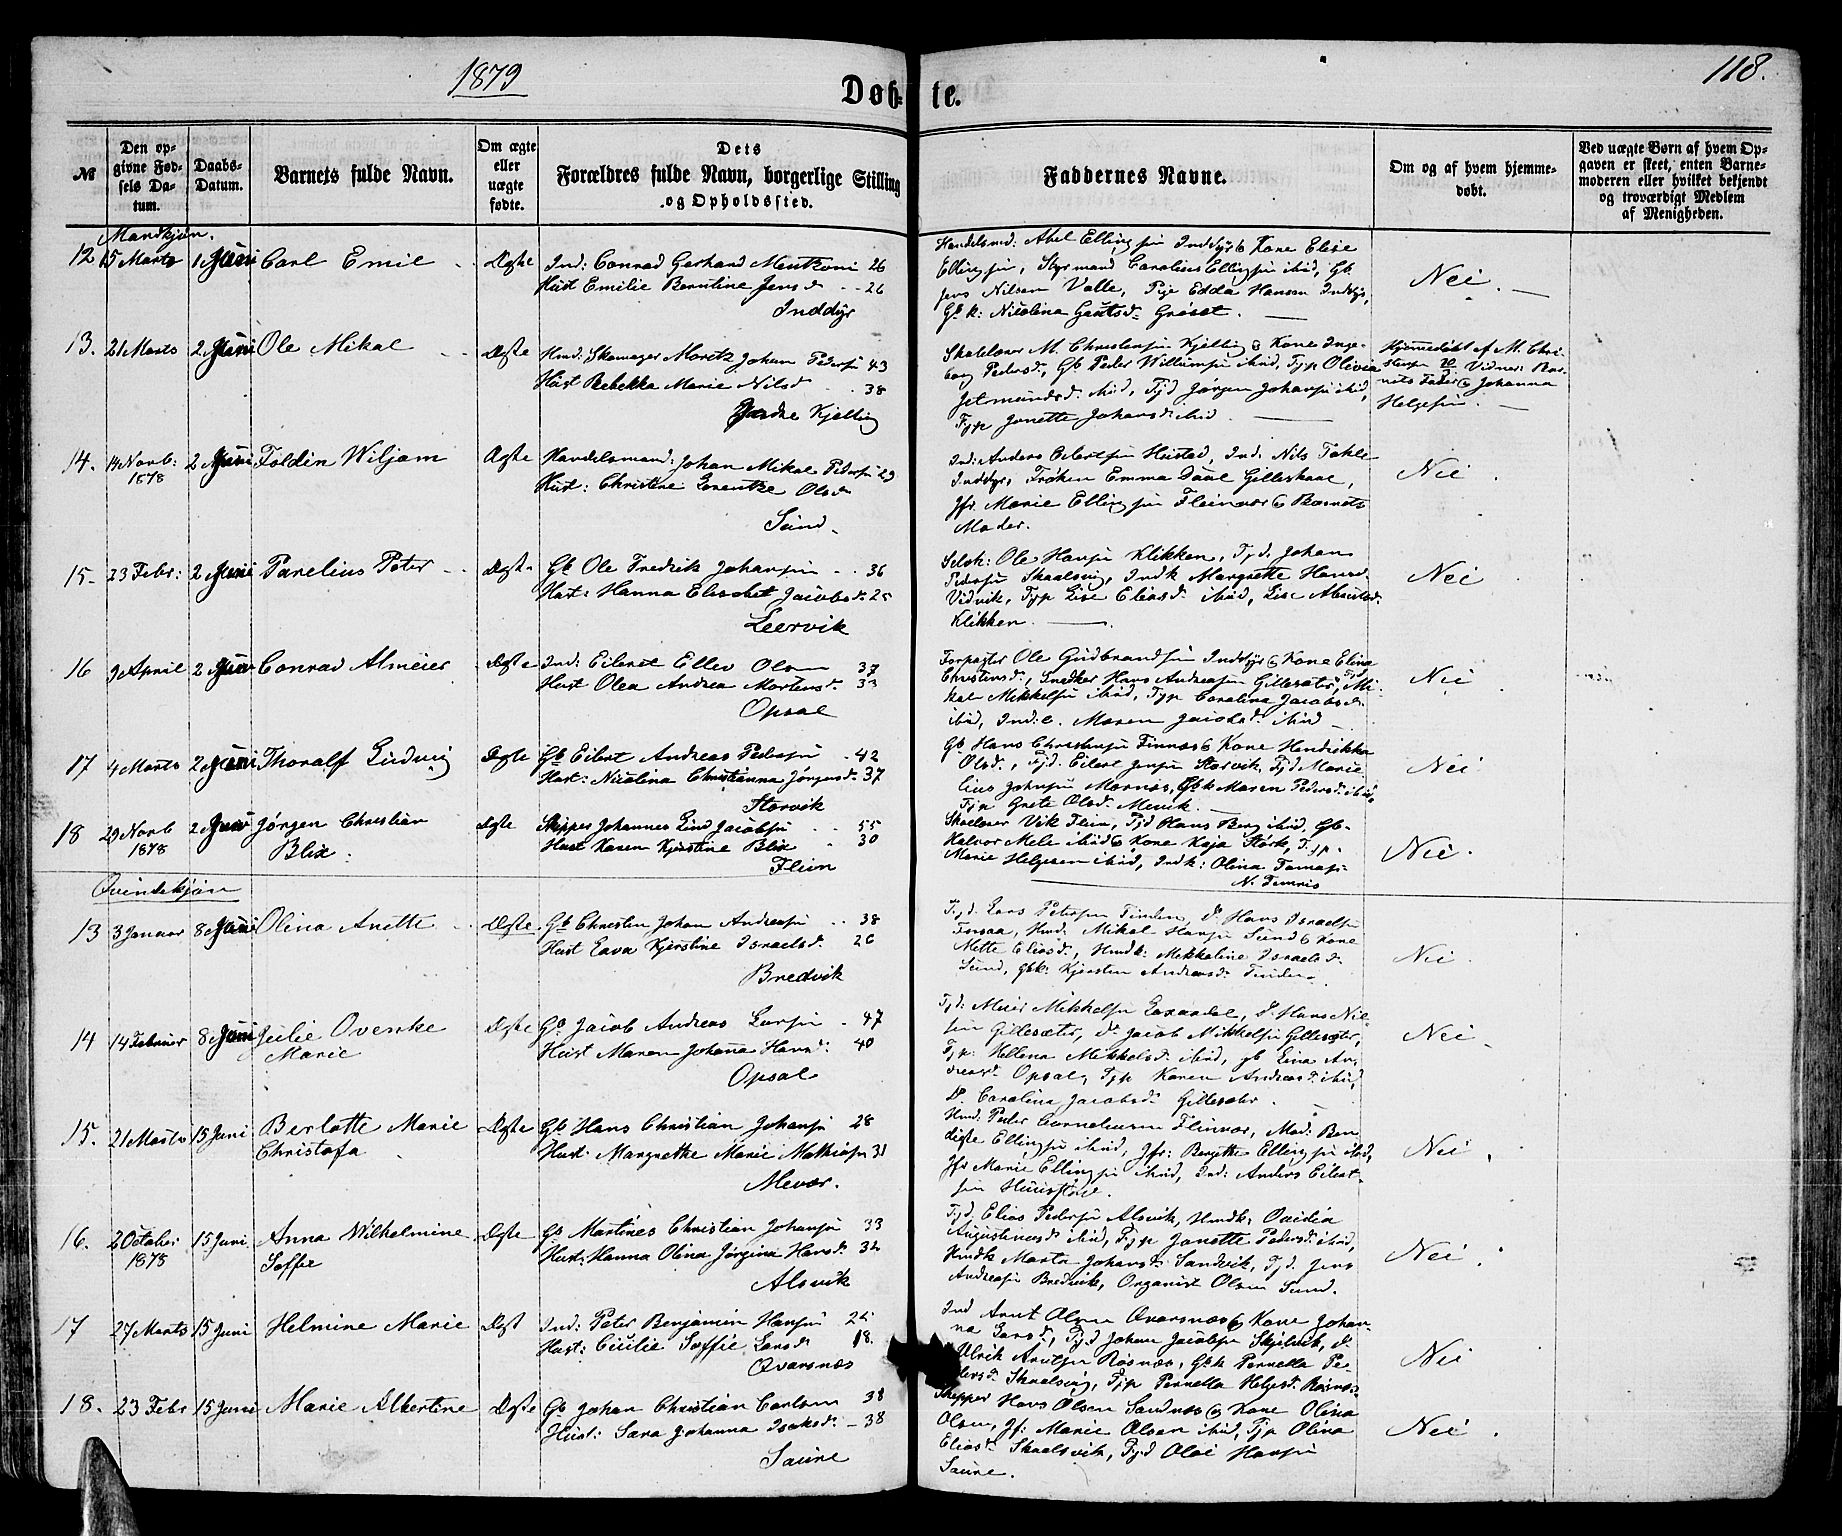 1879
Døb-
te.
118.
№
Den op-
givne Fød-
sels Da-
tum.
Daabs-
Datum.
Barnets fulde Navn.
Om ægte
eller
uægte
fødte.
Dets
Forældres fulde Navn, borgerlige Stilling
og Opholdssted.
Faddernes Navne.
Om og af hvem hjemme-
døbt.
Ved uægte Børn af hvem Op-
gaven er skeet, enten Barne-
moderen eller hvilket bekjendt
og troværdigt Medlem
af Menigheden.
Mandkjøn.
12 15 Marts 1 Juni Carl Emil Ægte
Ind: Conrad Gerhard 26
Hust Emilie Berntine Jensd. 26
Inddyr
Handelsmd: Abel Ellingsen Inddyr & Kone Elise
Ellingsen, Styrmand Carolius Ellingsen ibid, Gb
Jens Nilsen Valle, Pige Edda Hansen Inddyr,
Gbk: Nicolina Grøset.
Nei.
13. 21 Marts 2 Juni Ole Mikal Ægte
Hmd: Skomager Moritz Johan Peders. 43
Hust Rebekka Marie Nilsd. 38
Indre Kjelling
Skolelærer M. Christensen Kjelling & Kone Inge-
borg Pedersd., Gb Peder Willumsen ibid, Typ Olivia
Jetmundsd. ibid, Tjd Jørgen Johansen ibid,
Typ Jonette Johansd. ibid.
Hjemmedøbt af M. Chri-
stensen Vidner: Bar-
nets Fader & Johanna
Helgesen.
14. 14 Novb: 2 Juni Foldin Wiljam Ægte
1878
Handelsmand: Johan Mikal Peders. 29
Hust: Christine Lorentke Olsd.
Sund.
Ind: Anders Eilertsen Hustad, Ind. Nils Tohle
Inddyr, Frøken Emma Daae Gilleskaae,
Jfr. Marie Ellingsen Fleinvær & Barnets
Moder.
Nei.
15. 23 Febr: 2 Juni Parelius Peter Ægte
Gb Ole Fredrik Johansen 36
Hust: Hanna Elisabet Jacobsd. 25
Leervik
Selvh: Ole Hansen Klikken, Tjd. Johan
Pedersen Skaalsvig, Indk Margrethe Hansd.
Vidvik, Typ Lise Eliasd. ibid, Lise
Klikken.
Nei.
16 9 April 2 Juni Conrad Almeier Ægte
Ind: Eilert Ellev Olsen 37
Hust Olea Andrea Mortensd. 33
Opsal
Forpagter Ole Gudbrandsen Inddyr & Kone Elina
Christensd., Snedker Hans Andreasen Gillesæter, Tjd Mi-
kal Mikkelsen ibid, Typ Carolina Jacobsd.
ibid, Ind. e. Maren Jacobsd. ibid
Nei.
17 4 Marts 2 Juni Thoralf Ludvig Ægte
Gb Eilert Andreas Pedersen 42
Hust: Nicolina Christianna Jørgensd. 37
Storvik
Gb Hans Christensen Finnæs & Kone Hendrikka
Olsd., Tjd. Eilert Jensen Storvik, Tjd Marie-
lius Johnsen Mornæs, Gbk Maren Pedersd. ibid,
Typ Grete Olsd. Mevik.
Nei
18 29 Novb 2 Juni Jørgen Christian Ægte
1878 Blix.
Skipper Johannes Lind Jacobsen 55
Hust Karen Kjerstine Blix 30
Flein
Skolelærer Vik Flein, Tjd Hans Berg ibid, Gb.
Halvor Mele ibid & Kone Kaja Størk, Typ.
Marie Helgesen ibid, Indk: Olina
Nei.
Qvindekjøn
13 3 Januar 8 Juni Olina Anette Ægte.
Gb Christen Johan Andreasen 38
Hust Eava Kjerstine Israelsd. 26
Bredvik
Tjd. Lars Petersen Finden, do Hans Israelsen
Forsaa, Hmd. Mikal Hansen Sund & Kone
Mette Eliasd., Hmdk: Mekkeline Israelsd.
Sund, gbk: Kjersten Andreasd. Finden.
Nei.
14 14 Februar 8 Juni Julie Ovenke Ægte
Marie
Gb Jacob Andreas Larsen 47
Hust Maren Johanna Hansd. 40
Opsal
Tjd: Meier Mikkelsen Laxaadal, do Hans Nil-
sen Gillesæter, do Jacob Mikkelsen Gillesæter,
Typ: Hellena Mikkelsd. ibid, gb Lina An-
dreasd. Opsal, Typ Karen Andreasd. ibid,
do Carolina Jacobsd. Gillesæter.
Nei.
15. 21 Marts 15 Juni Berlotte Marie Ægte
Christofa
Gb Hans Christian Johansen 28
Hust: Margrethe Marie Mathiasen 31
Mevær.
Hmd. Peder Corneliusen Fleinvær, Mad: Ben-
digte Ellingsen ibid, Jfr: Bergitte Ellingsen ibid,
Jfr Marie Ellingsen ibid, Ind: Anders Eilert-
sen
Nei.
16. 2 October 15 Juni Anna Wilhelmine Ægte
1878 Soffie
Gb Martines Christian Johansen 33
Hust: Hanna Olina Jørgina Hansd. 32
Alsvik
Tjd. Elias Pedersen Alsvik, Hmdk: Ovidia
Augustinusd. ibid, Typ Janette Pedersd. ibid,
Hmdk Marta Johansd. Sandvik, Tjd. Jens
Andreasen Bredvik, Organist Olsen Sund.
Nei.
17 27 Marts 15 Juni Helmine Marie Ægt
Ind: Peter Benjamin Hansen 25
Hust: Cicilie Soffie Larsd. 18.
Qvarsnæs
Ind Arnt Olsen Qvarsnæs & Kone Johan-
na Larsd., Tjd Johan Jacobsen Skjelvik, do
Ulrik Arntsen Røsnæs, Gbk Pernella Pe-
dersd. Skaalsvig, Typ Pernella Helgesd. Røsnæs
Nei
18. 23 Febr 15 Juni Marie Albertine Ægte
Gb Johan Christian Carlsen 38
Hust: Sara Johanna Isaksd. 38
Saure
Skipper Hans Olsen Sandnæs & Kone Olina
Olsen, Jf: Marie Olsen ibid, Typ Olina
Eliasd. Skaalsvik, Tjd Olai Hansen
Saure.
Nei.